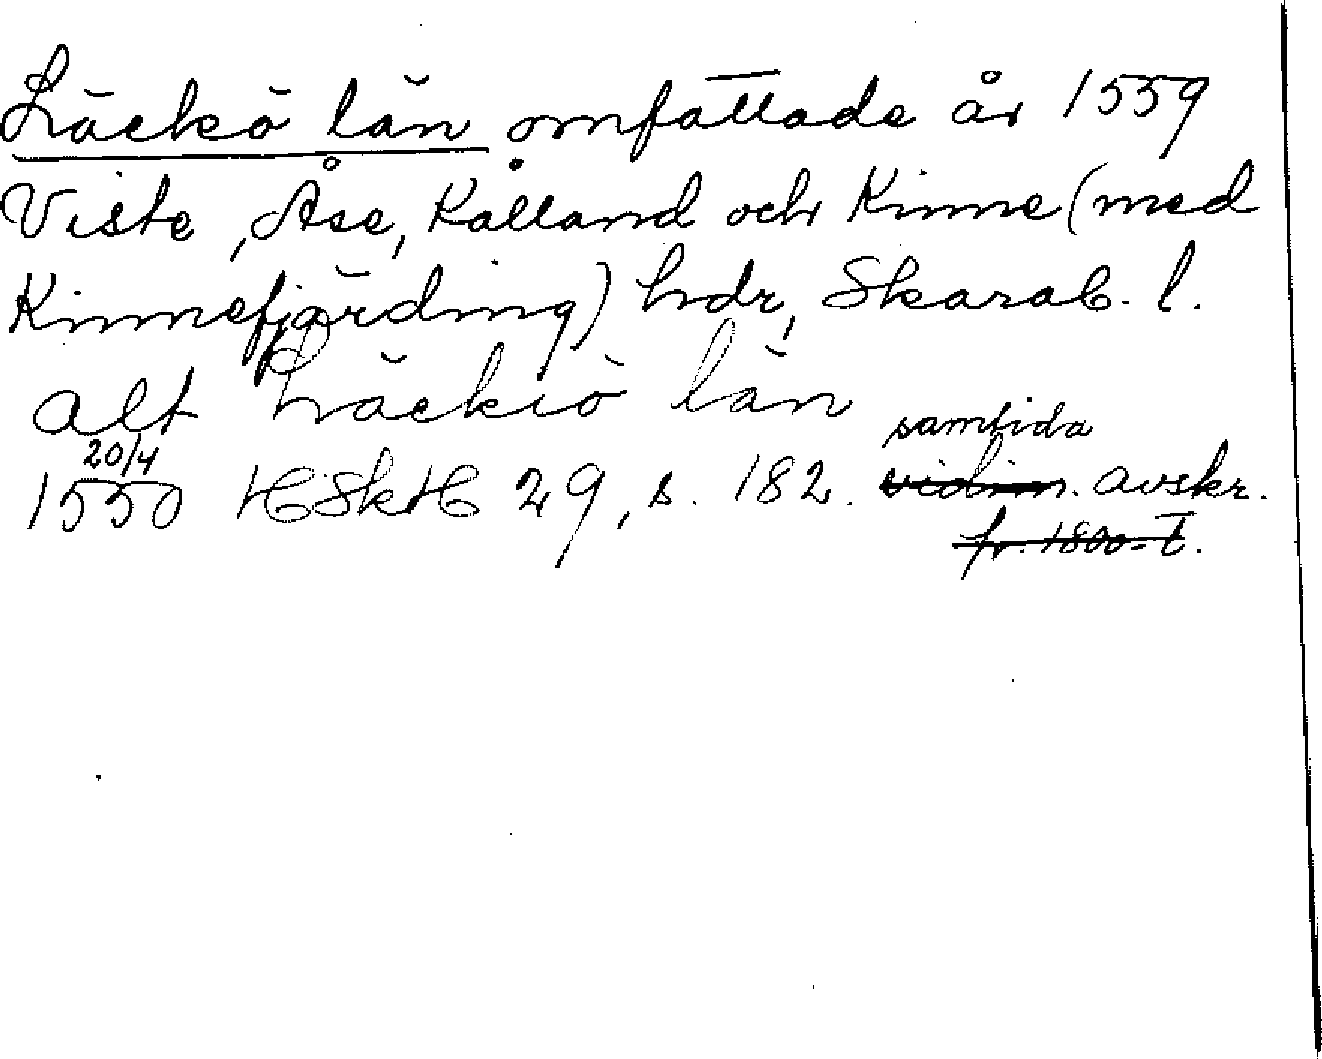 Läckö län omfattade år 1559
Viste, Åse, Kålland och Kinne (med
Kinnefjärding) hdr, Skarab. l.
alt Läckiö län
samtida
20/4
1550 HSkH 29, s. 182. vidim. avskr.
fr. 1800-t.